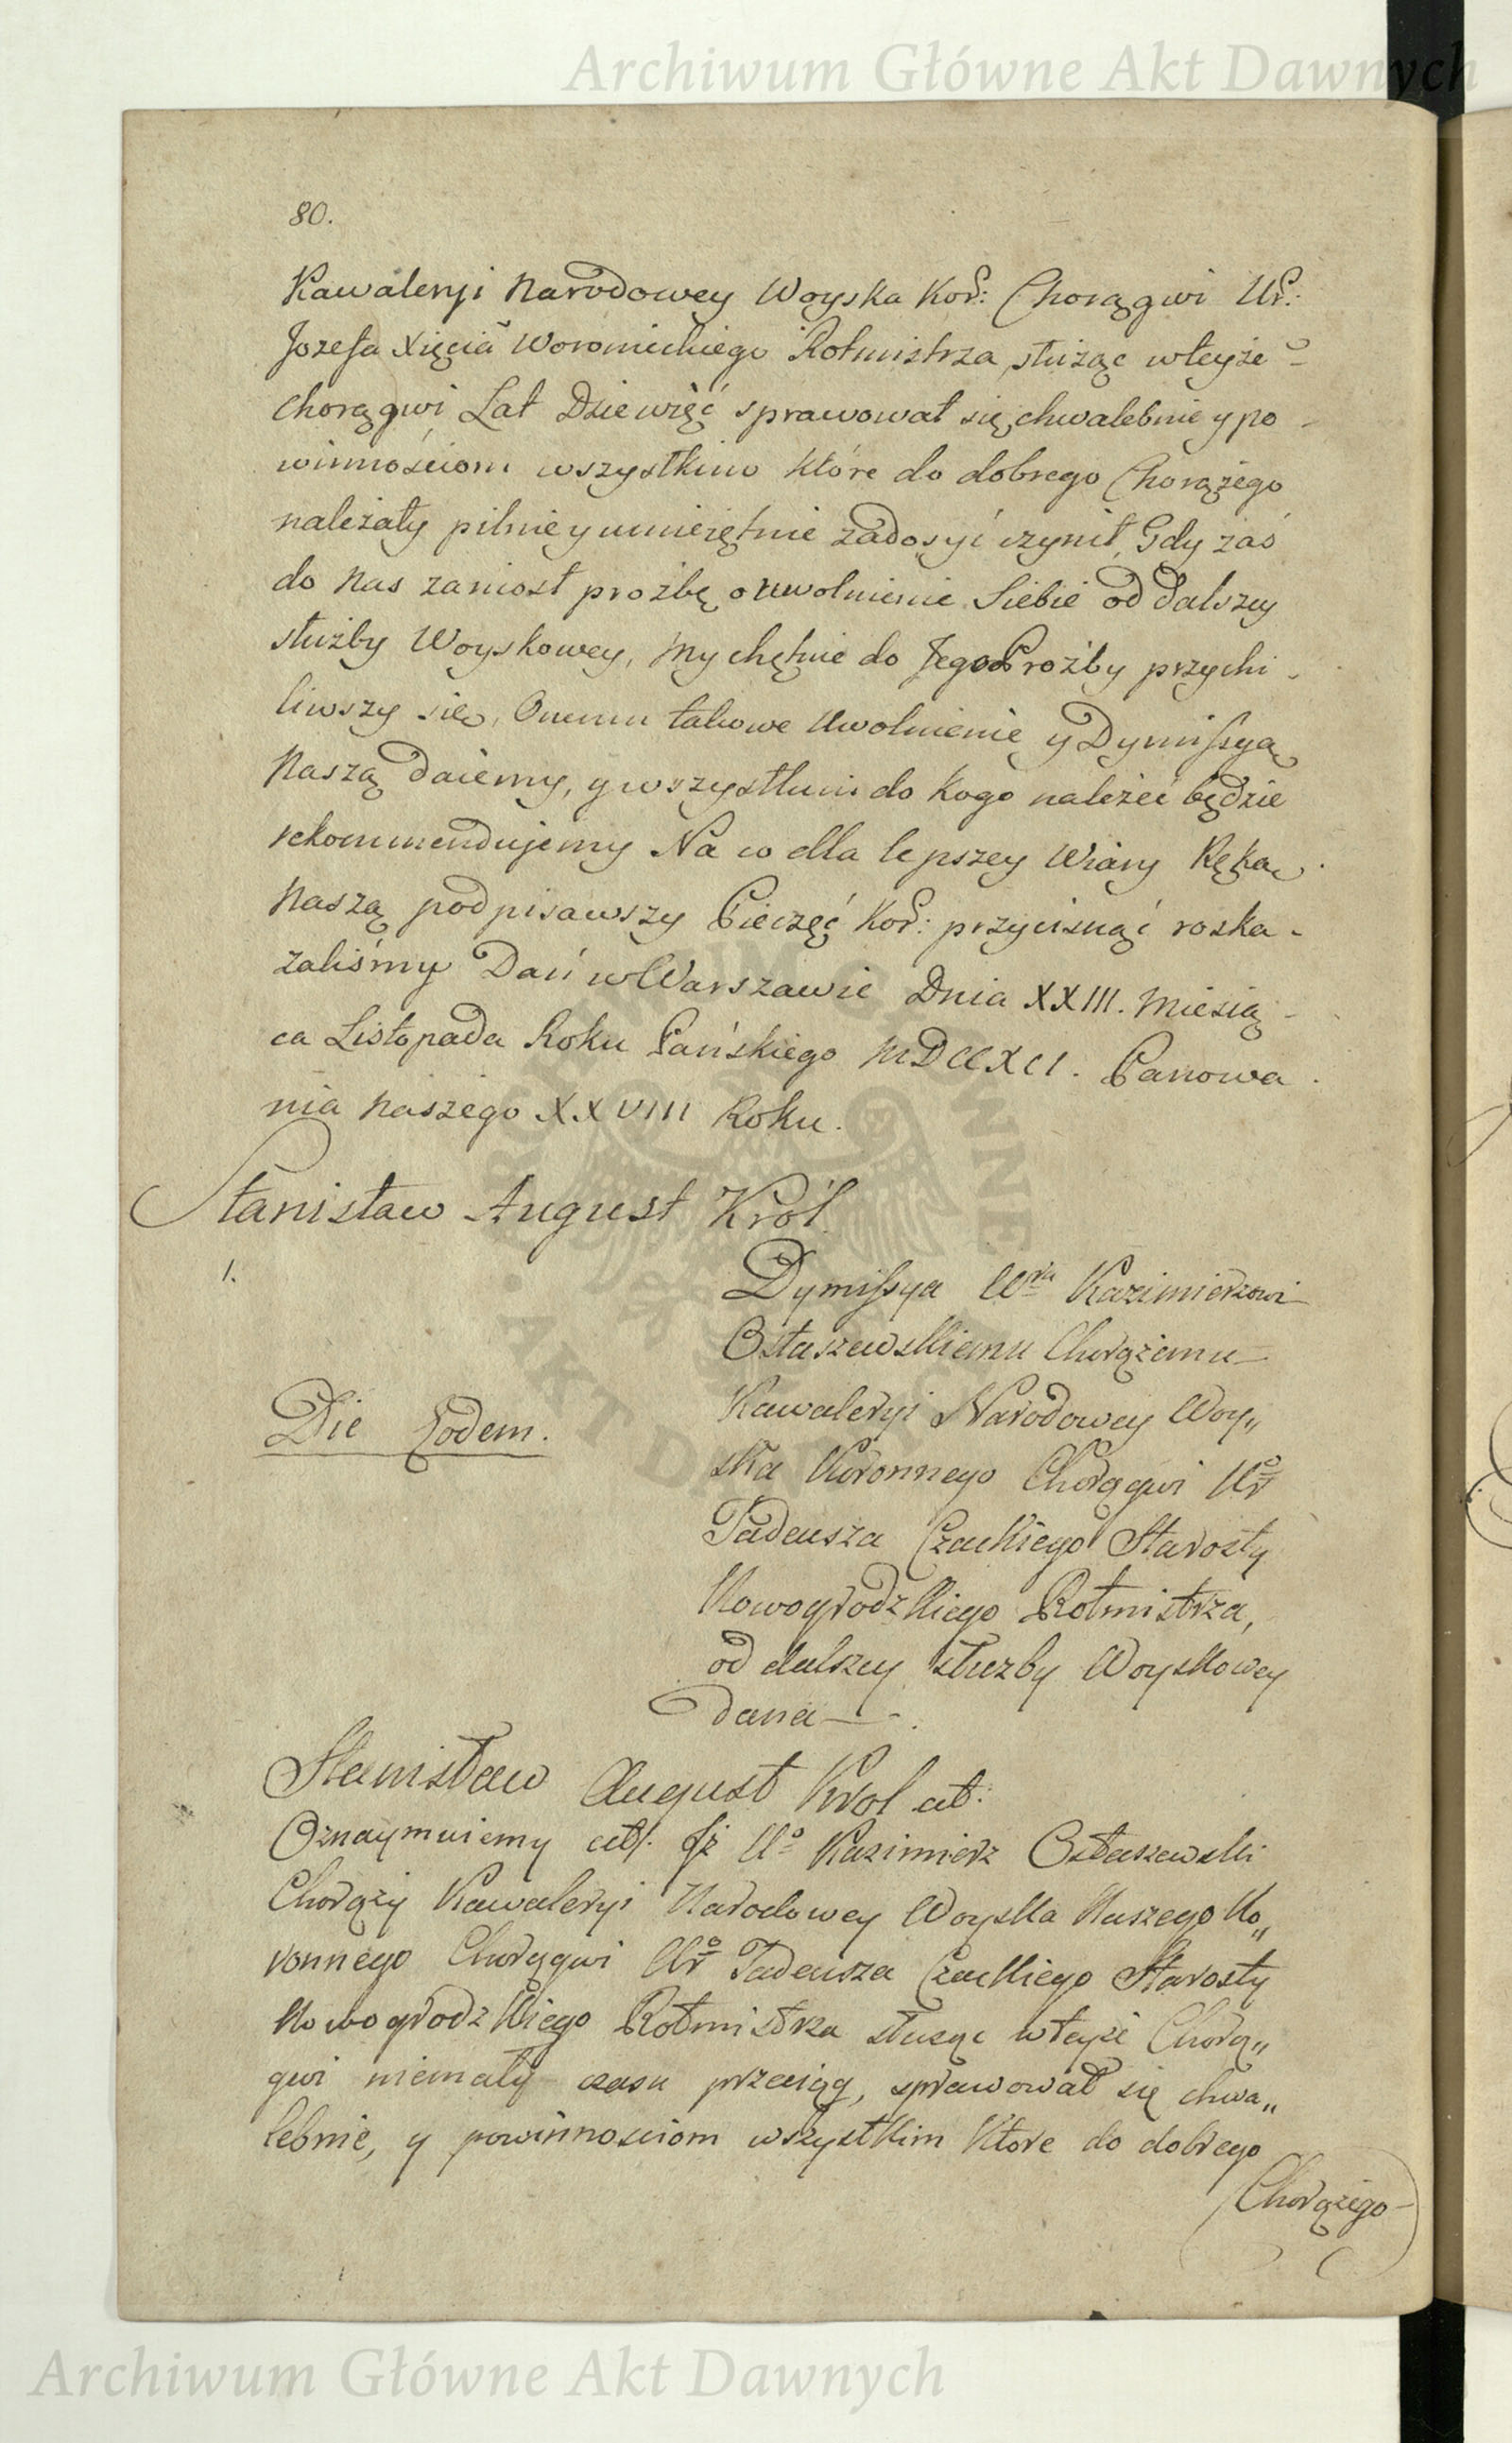 Archiwum Główne Akt Dawnych
80.
Kawaleryi Narodowey Woyska Kor: Chorągwi Ur:
Jozefa Xięcia Woronieckiego Rotmistrza, służąc w teyże
chorągwi Lat Dziewięć sprawował się chwalebnie y po-
winnościom wszystkim które do dobrego Chorążego
należały pilnie y umieiętnie zadosyć czynił, Gdy zaś
do Nas zaniosł proźbę o uwolnienie Siebie od dalszey
służby Woyskowey, My chętnie do Jego Proźby przychi-
liwszy się, Onemu takowe Uwolnienie y Dymissyą
Naszą daiemy, y wszystkim do kogo należeć będzie
rekommendujemy Na co dla lepszey Wiary Ręką
Naszą podpisawszy Pieczęć Kor: przycisnąć roska-
zaliśmy Dań w Warszawie Dnia XXIII. Miesią-
ca Listopada Roku Pańskiego MDCCXCI. Panowa
nia Naszego XXVIII Roku.
Stanisław August Król
1.
Dymissya Ur Kazimierzowi
Ostaszewskiemu Chorążemu
Kawaleryi Narodowey Woy„
Die Eodem.
ska Koronnego Chorągwi Ur
Tadeusza Czackiego Starosty
Nowogrodzkiego Rotmistrza,
od dalszey służby Woyskowey
dana
Stanisław August Krol etc:
Oznaymuiemy etc. Jż Uo Kazimierz Ostaszewski
Chorąży Kawaleryi Narodowey Woyska Naszego Ko„
ronnego Chorągwi Ur Tadeusza Czackiego Starosty
Nowogrodzkiego Rotmistrza służąc w teyże Chorą„
gwi niemały czasu przeciąg, sprawował się chwa„
lebnie, y powinnosciom wszystkim ktore do dobrego
Chorążego
Archiwum Główne Akt Dawnych